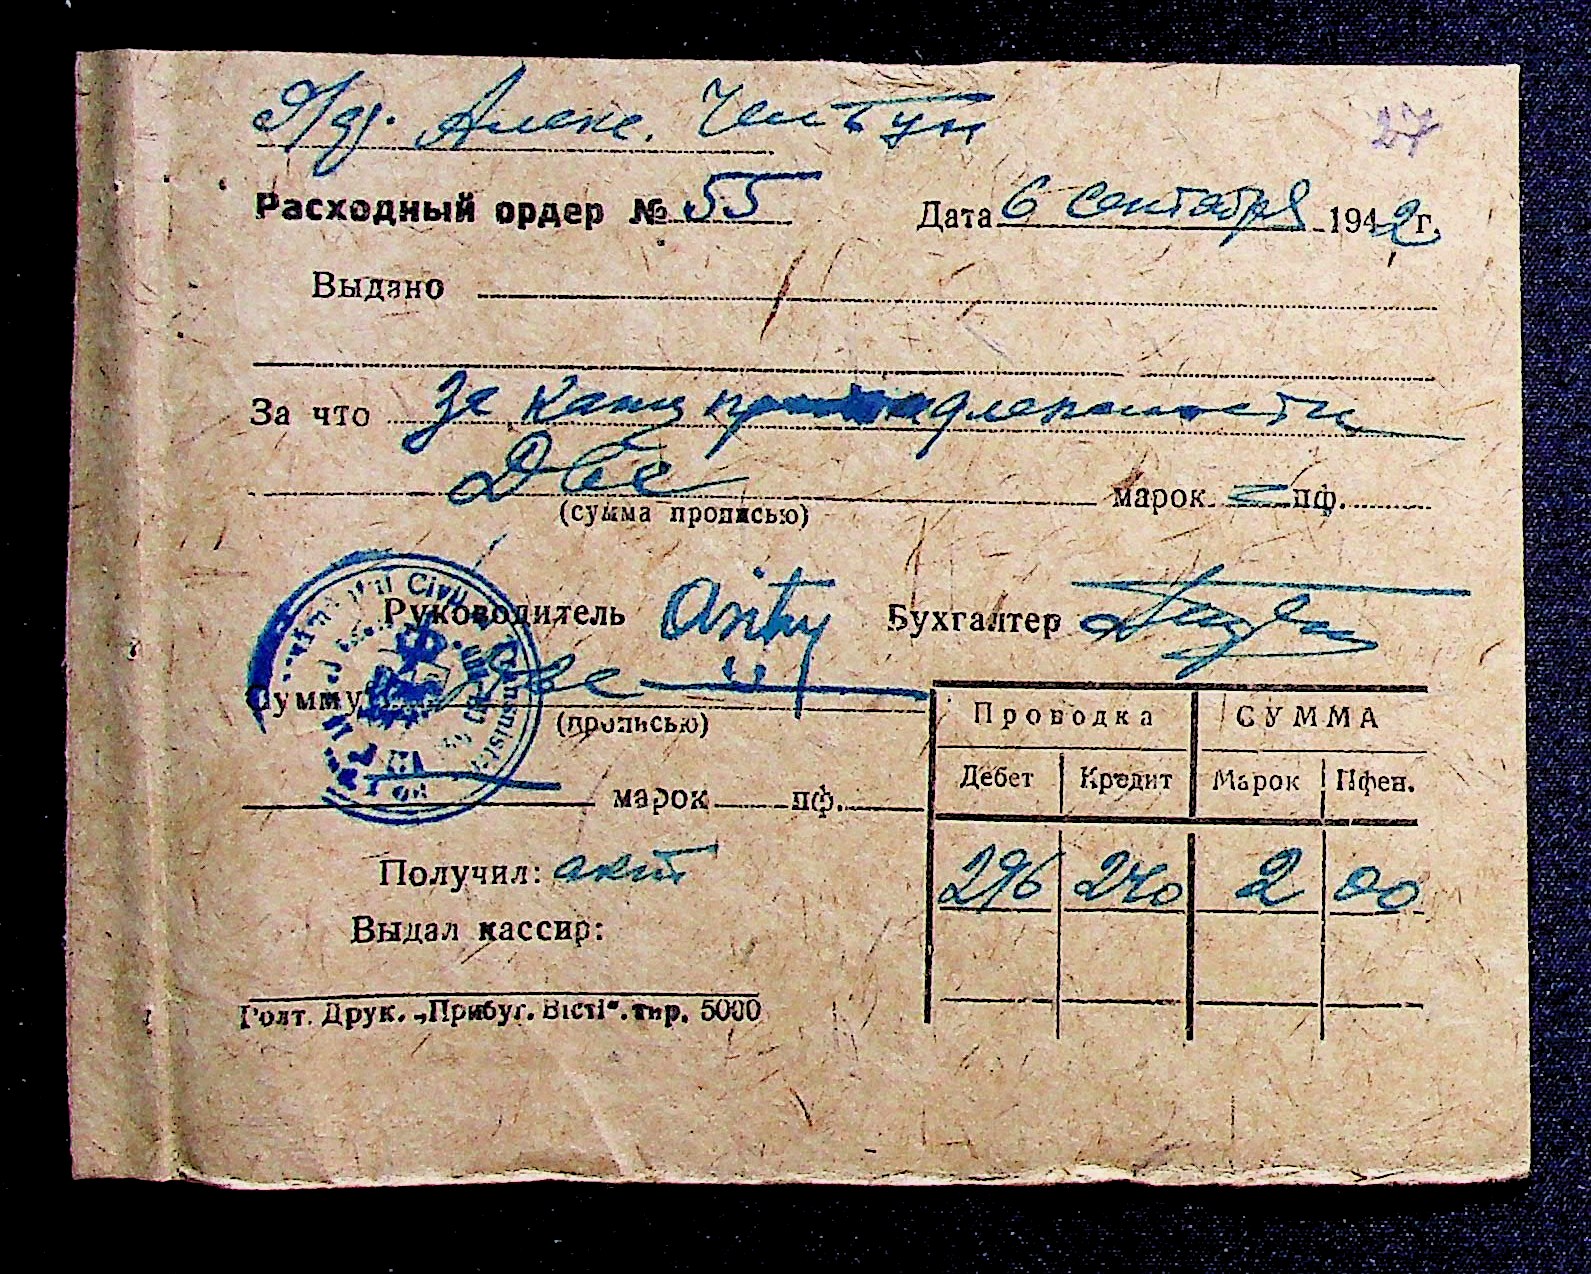 Алекс.
27
Расходный ордер № 55 Дата 6 сентября 1942 г.
Выдано
За что За канц принадлежности
Две марок = пф.
(сумма прописью)
Руководитель Бухгалтер
Сумму Две
(прописью)
марок пф.
Civil Transnist
Проводка СУММА
Дебет Кредит Марок Пфен.
296 240 2 00
Получил: акт
Выдал кассир:
Голт. Друк. „Прибуг. Вісті“. тир. 5000